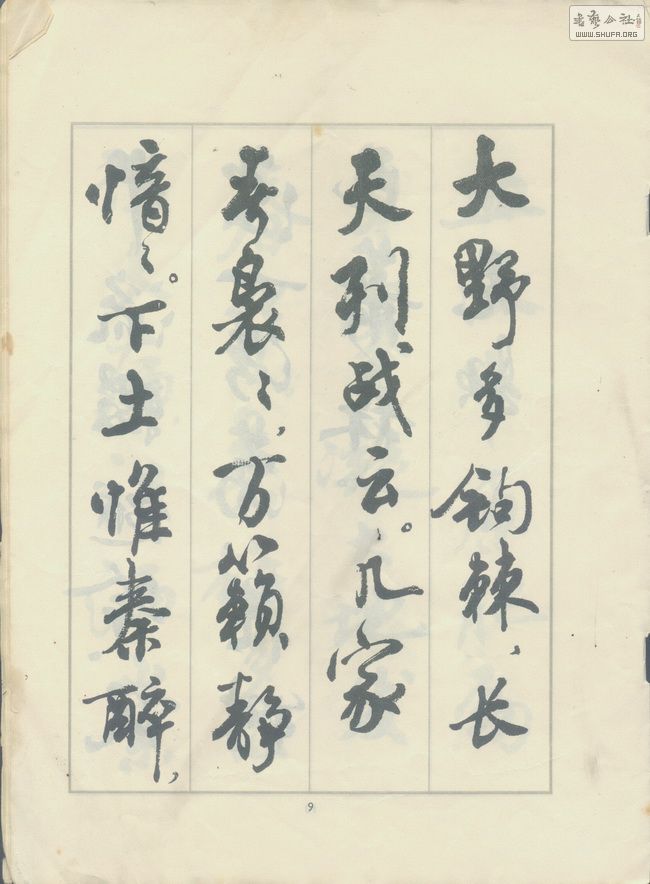 書藝公社
WWW.SHUFA.ORG
大野多钩棘、长
天列战云。几家
春袅〻，万籁静
愔〻。下土惟秦醉，
9